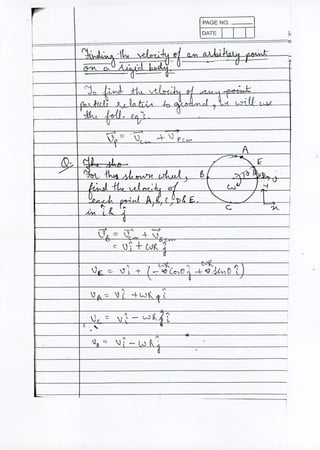 PAGE NO.
DATE
Finding the velocity of an arbitrary point
on a rigid body.
To find the velocity of any point
particle relative to ground, we will use
the foll. eqⁿ.
V⃗p = V⃗cm + V⃗Pcm
Q. The sho
For the shown wheel,
find the velocity of
each point A, B, C, D & E.
in î & ĵ
A
E
B
D
θ
ω
C
v
y
x
V⃗B = V⃗cm + V⃗Bcm
= vî + ωR ĵ
VE = vî + (-ωR cosθ ĵ + ωR sinθ î)
VA = vî + ωR î
Vc = vî - ωR î
VD = vî - ωR ĵ